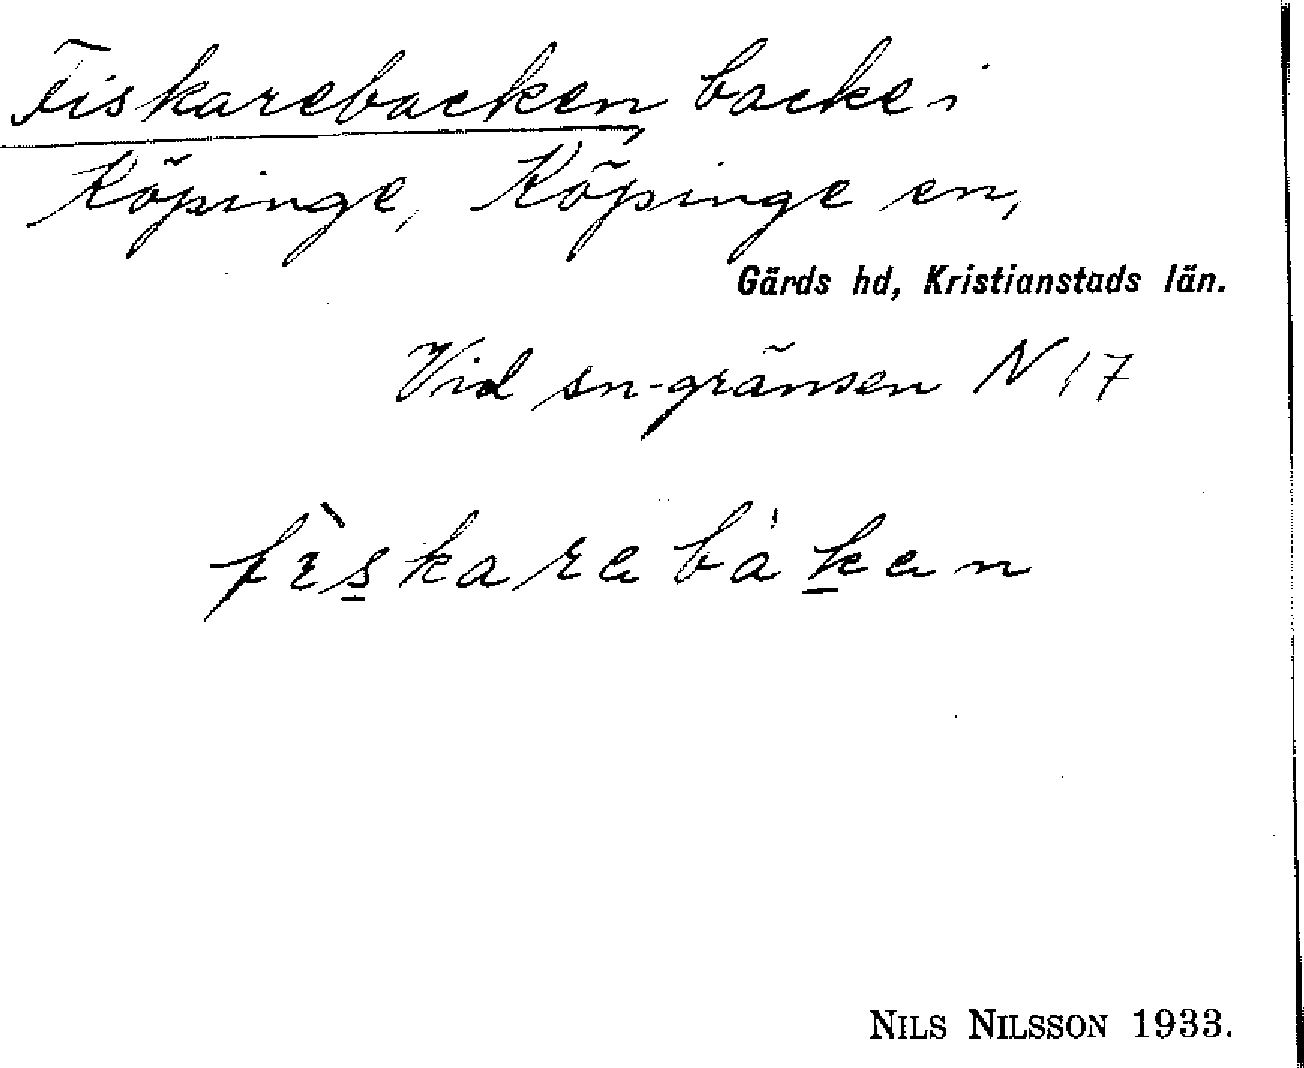 Fiskarebacken, backe i
Köpinge, Köpinge sn,
Gärds hd, Kristianstads län.
Vid sn-gränsen N 17
fìskarebákan
NILS NILSSON 1933.